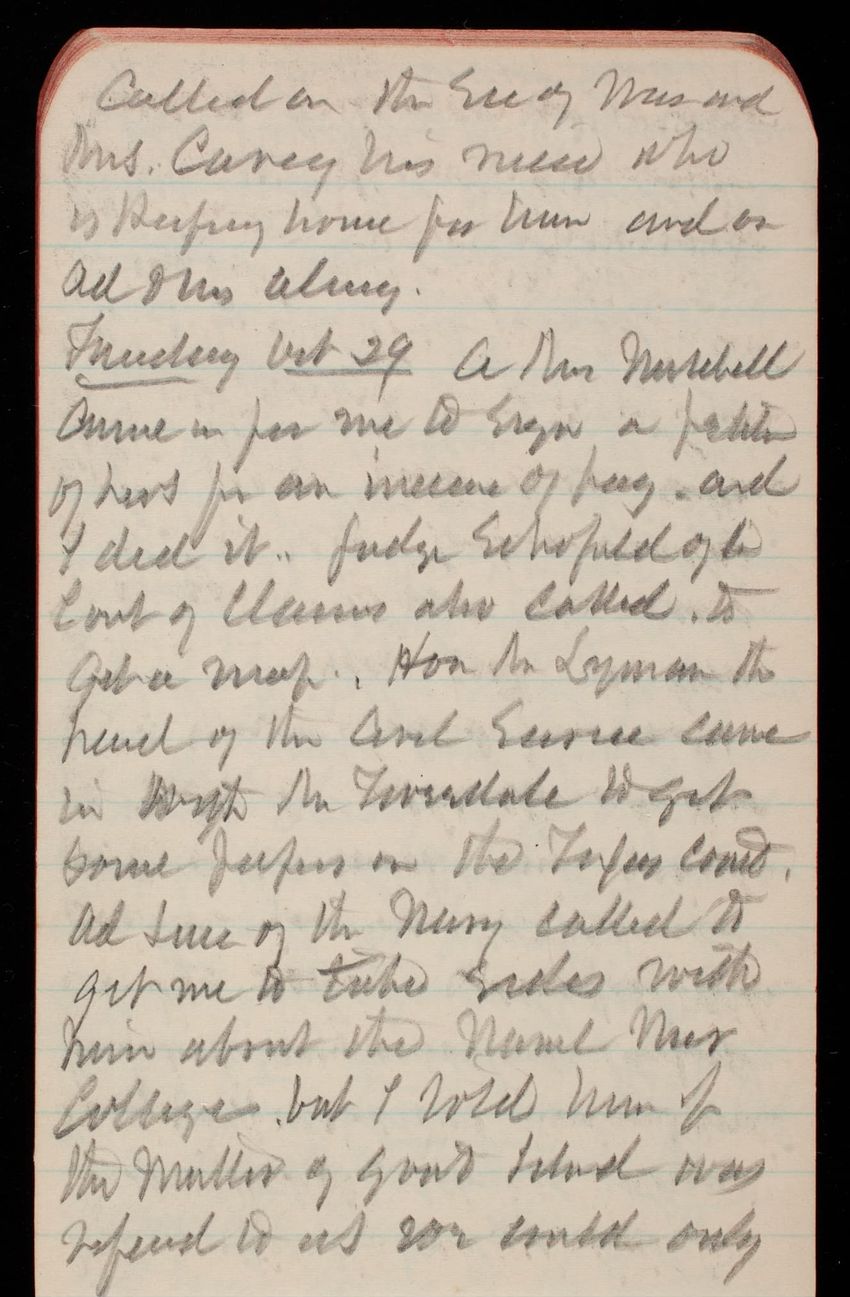 Called on the Sec of War and
Mrs. Carey his niece who
is Keeping house for him and on
Ad
Tuesday Oct 29 A Mrs Mitchell
came in for me to sign a petition
of hers for an increase of pay. and
I did it.. Judge Schofield of the
Court of Claims also called. to
Get a map.. Hon Mr Lyman the
head of the Civil Service came
in with Mr to get
some papers on the case.
Ad Sec of the Navy called to
get me to take sides with
him about the Naval War
College. but I told him if
the Matter of Goat Island was
referred to us we could only